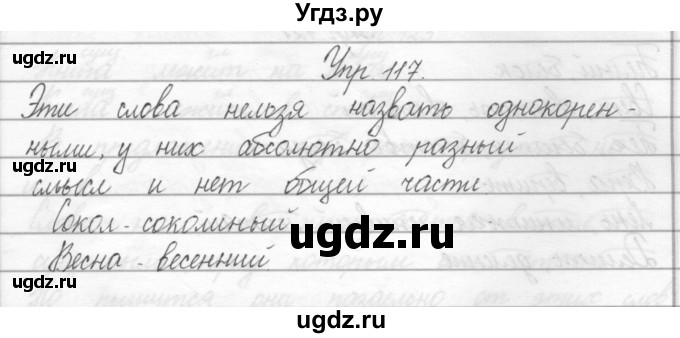 Угдз.ру
ugdz.ru
ugdz.ru
Упр 117.
Эти слова нельзя назвать однокорен-
ными, у них абсолютно разный
ugdz.ru
ugdz.ru
смысл и нет общей части.
Сокол - соколиный
ugdz.ru
Весна - весенний.
ugdz.ru
ugdz.ru
ugdz.ru